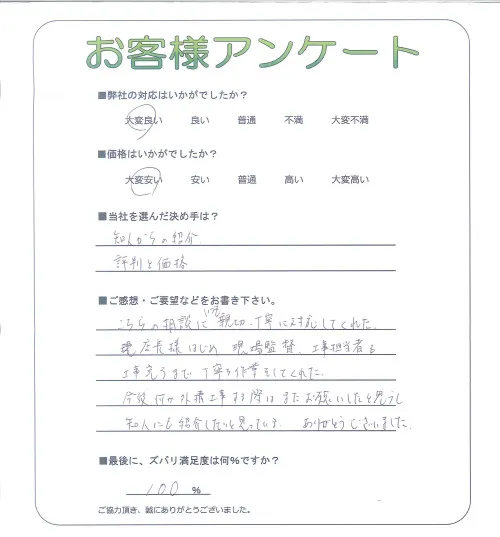 お客様アンケート
■弊社の対応はいかがでしたか？
大変良い 良い 普通 不満 大変不満
■価格はいかがでしたか？
大変安い 安い 普通 高い 大変高い
■当社を選んだ決め手は？
知人からの紹介
評判と価格
■ご感想・ご要望などをお書き下さい。
こちらの相談にいつも親切、丁寧に対応してくれた。
店長様はじめ 現場監督、工事担当者も
工事完うまで 丁寧な作業をしてくれた。
今後何か外構工事する際はまたお願いしたいと思うし
知人にも紹介したいと思っている。 ありがとうございました。
■最後に、ズバリ満足度は何%ですか？
100 %
ご協力頂き、誠にありがとうございました。